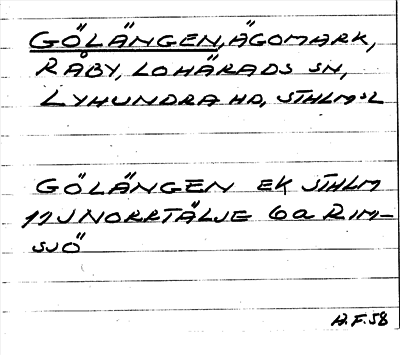 GÖLÄNGEN, ÄGOMARK,
RÅBY, LOHÄRADS SN,
LYHUNDRA HD, STHLM:S L
GÖLÄNGEN EK STHLM
11J NORRTÄLJE 6a RIM-
SJÖ
H.F. 58